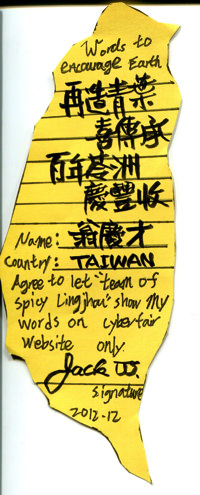 Words to
encourage Earth
再造青葉
喜傳承
百年苓洲
慶豐收
Name: 翁慶才
Country: TAIWAN
Agree to let "team of
spicy Lingjhou" show my
words on cyberfair
website only.
Jack W.
signature
2012-12